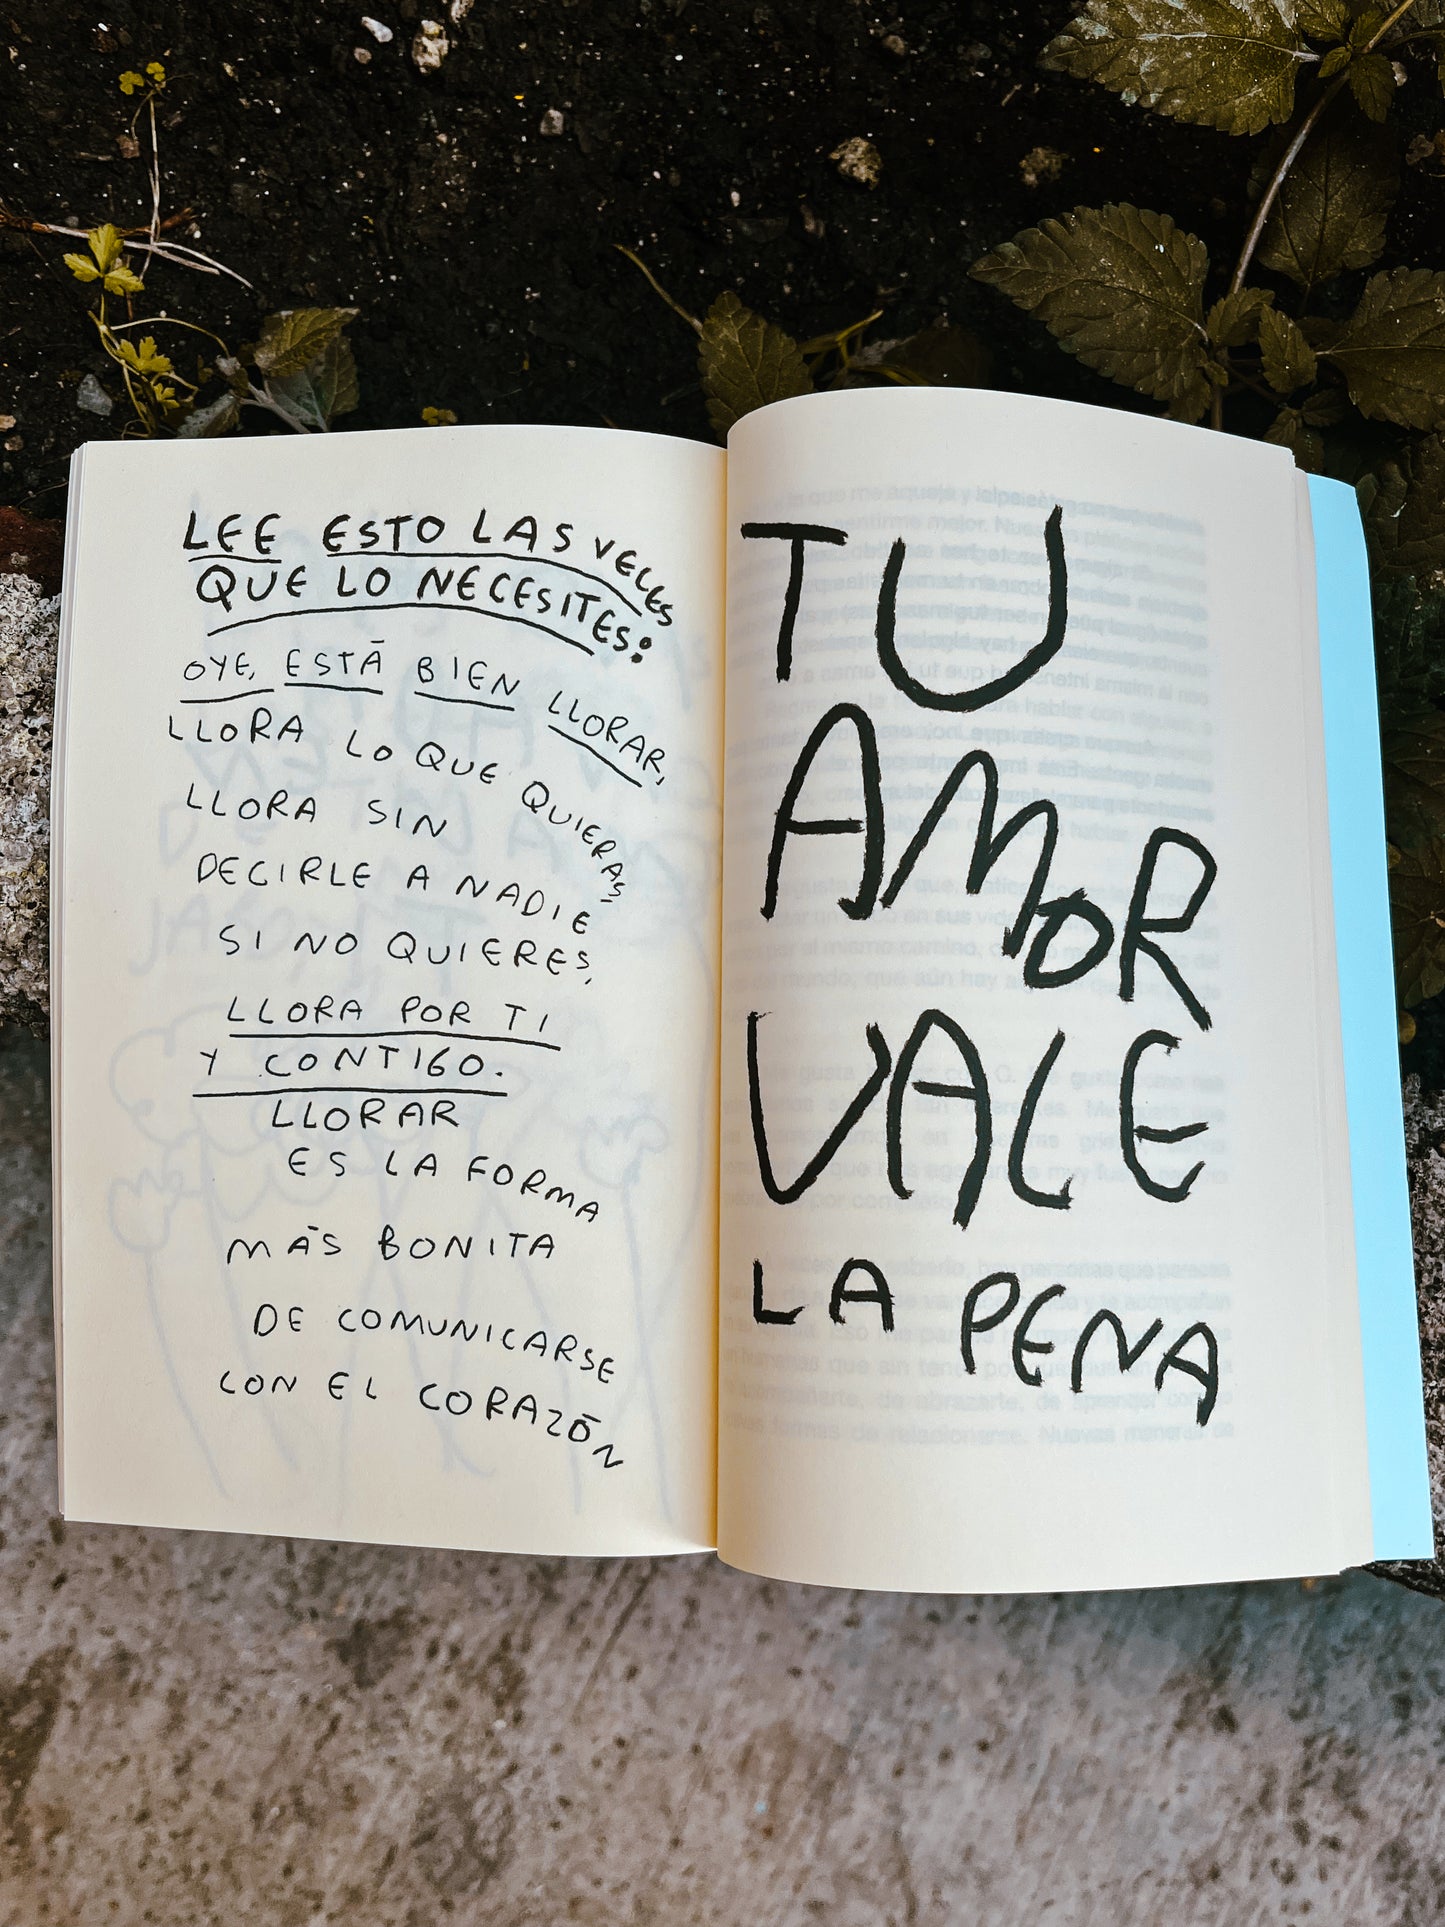 LEE ESTO LAS VECES
QUE LO NECESITES:
OYE, ESTÁ BIEN LLORAR,
LLORA LO QUE QUIERAS,
LLORA SIN
DECIRLE A NADIE
SI NO QUIERES,
LLORA POR TI
Y CONTIGO.
LLORAR
ES LA FORMA
MÁS BONITA
DE COMUNICARSE
CON EL CORAZÓN
TU
AMOR
VALE
LA PENA